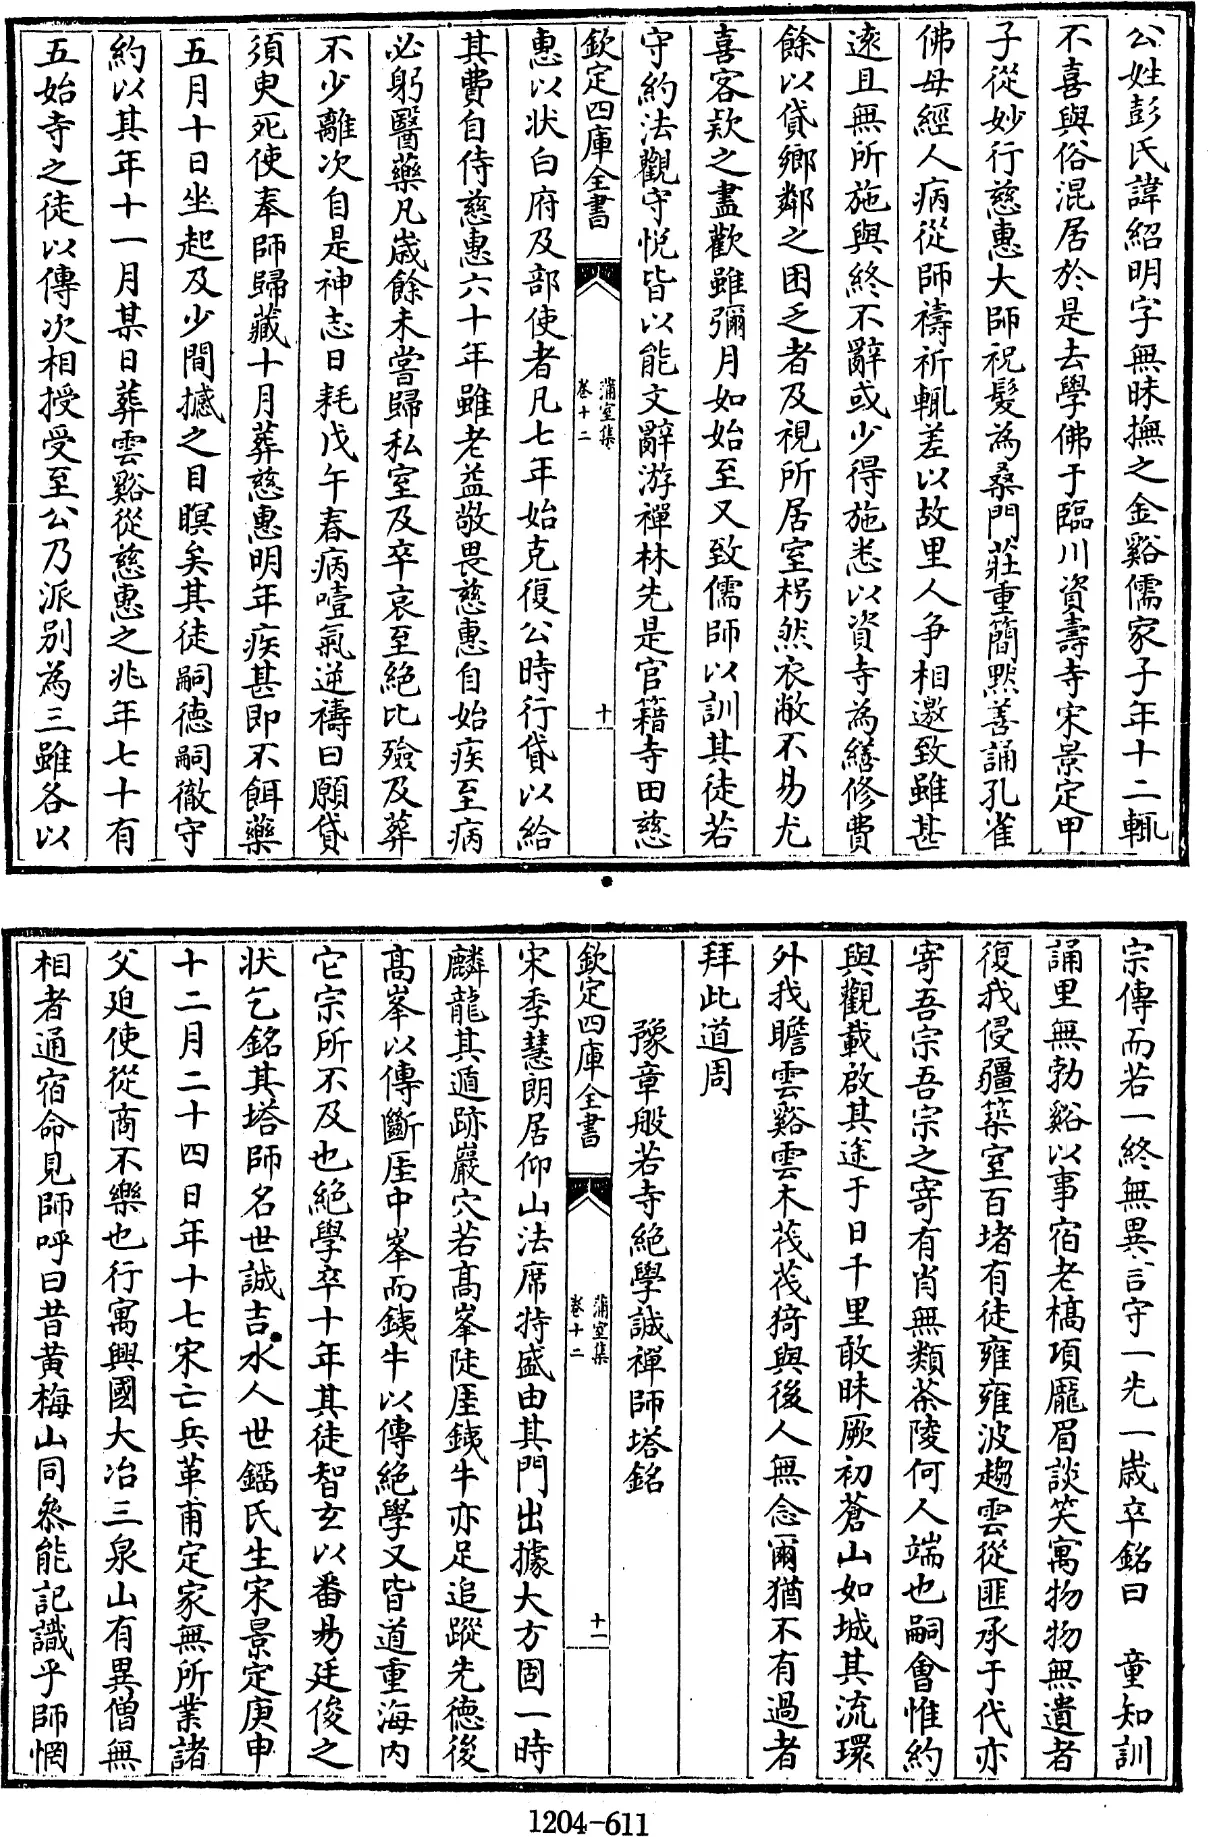 公姓彭氏諱紹明字無昧撫之金谿儒家子年十二輒
不喜與俗混居於是去學佛于臨川資壽寺宋景定甲
子從妙行慈惠大師祝髮為桑門莊重簡黙善誦孔雀
佛母經人病從師禱祈輒差以故里人争相邀致雖甚
逺且無所施與終不辭或少得施悉以資寺為繕修費
餘以貸鄉鄰之困乏者及視所居室枵然衣敝不易尤
喜客欵之盡歡雖彌月如始至又致儒師以訓其徒若
守約法觀守悦皆以能文辭游禪林先是官籍寺田慈
欽定四庫全書
蒲室集
卷十二
十
惠以狀白府及部使者凡七年始克復公時行貸以給
其費自侍慈惠六十年雖老益敬畏慈惠自始疾至病
必躬醫藥凡嵗餘未嘗歸私室及卒哀至絶比殮及葬
不少離次自是神志日耗戊午春病噎氣逆禱曰願貸
須臾死使奉師歸藏十月葬慈惠明年疾甚即不餌藥
五月十日坐起及少間撼之目瞑矣其徒嗣德嗣徹守
約以其年十一月某日葬雲谿從慈惠之兆年七十有
五始寺之徒以傳次相授受至公乃派别為三雖各以
宗傳而若一終無異言守一先一嵗卒銘曰 童知訓
誦里無勃谿以事宿老槁項龎眉談笑寓物物無遺者
復我侵疆築室百堵有徒雍雍波趨雲從匪承于代亦
寄吾宗吾宗之寄有肖無類荼陵何人端也嗣會惟約
與觀載啟其途于日千里敢昧厥初蒼山如城其流環
外我瞻雲谿雲木茷茷猗與後人無念爾猶不有過者
拜此道周
豫章般若寺絶學誠禪師塔銘
欽定四庫全書
蒲室集
卷十二
十一
宋季慧朗居仰山法席特盛由其門出據大方固一時
麟龍其遁跡巖穴若髙峯陡厓鐵牛亦足追蹤先德後
髙峯以傳斷厓中峯而鐵牛以傳絶學又皆道重海内
它宗所不及也絶學卒十年其徒智玄以番昜廷俊之
狀乞銘其塔師名世誠吉水人世鐳氏生宋景定庚申
十二月二十四日年十七宋亡兵革甫定家無所業諸
父廹使從商不樂也行寓興國大冶三泉山有異僧無
相者通宿命見師呼曰昔黄梅山同叅能記識乎師惘
1204-611